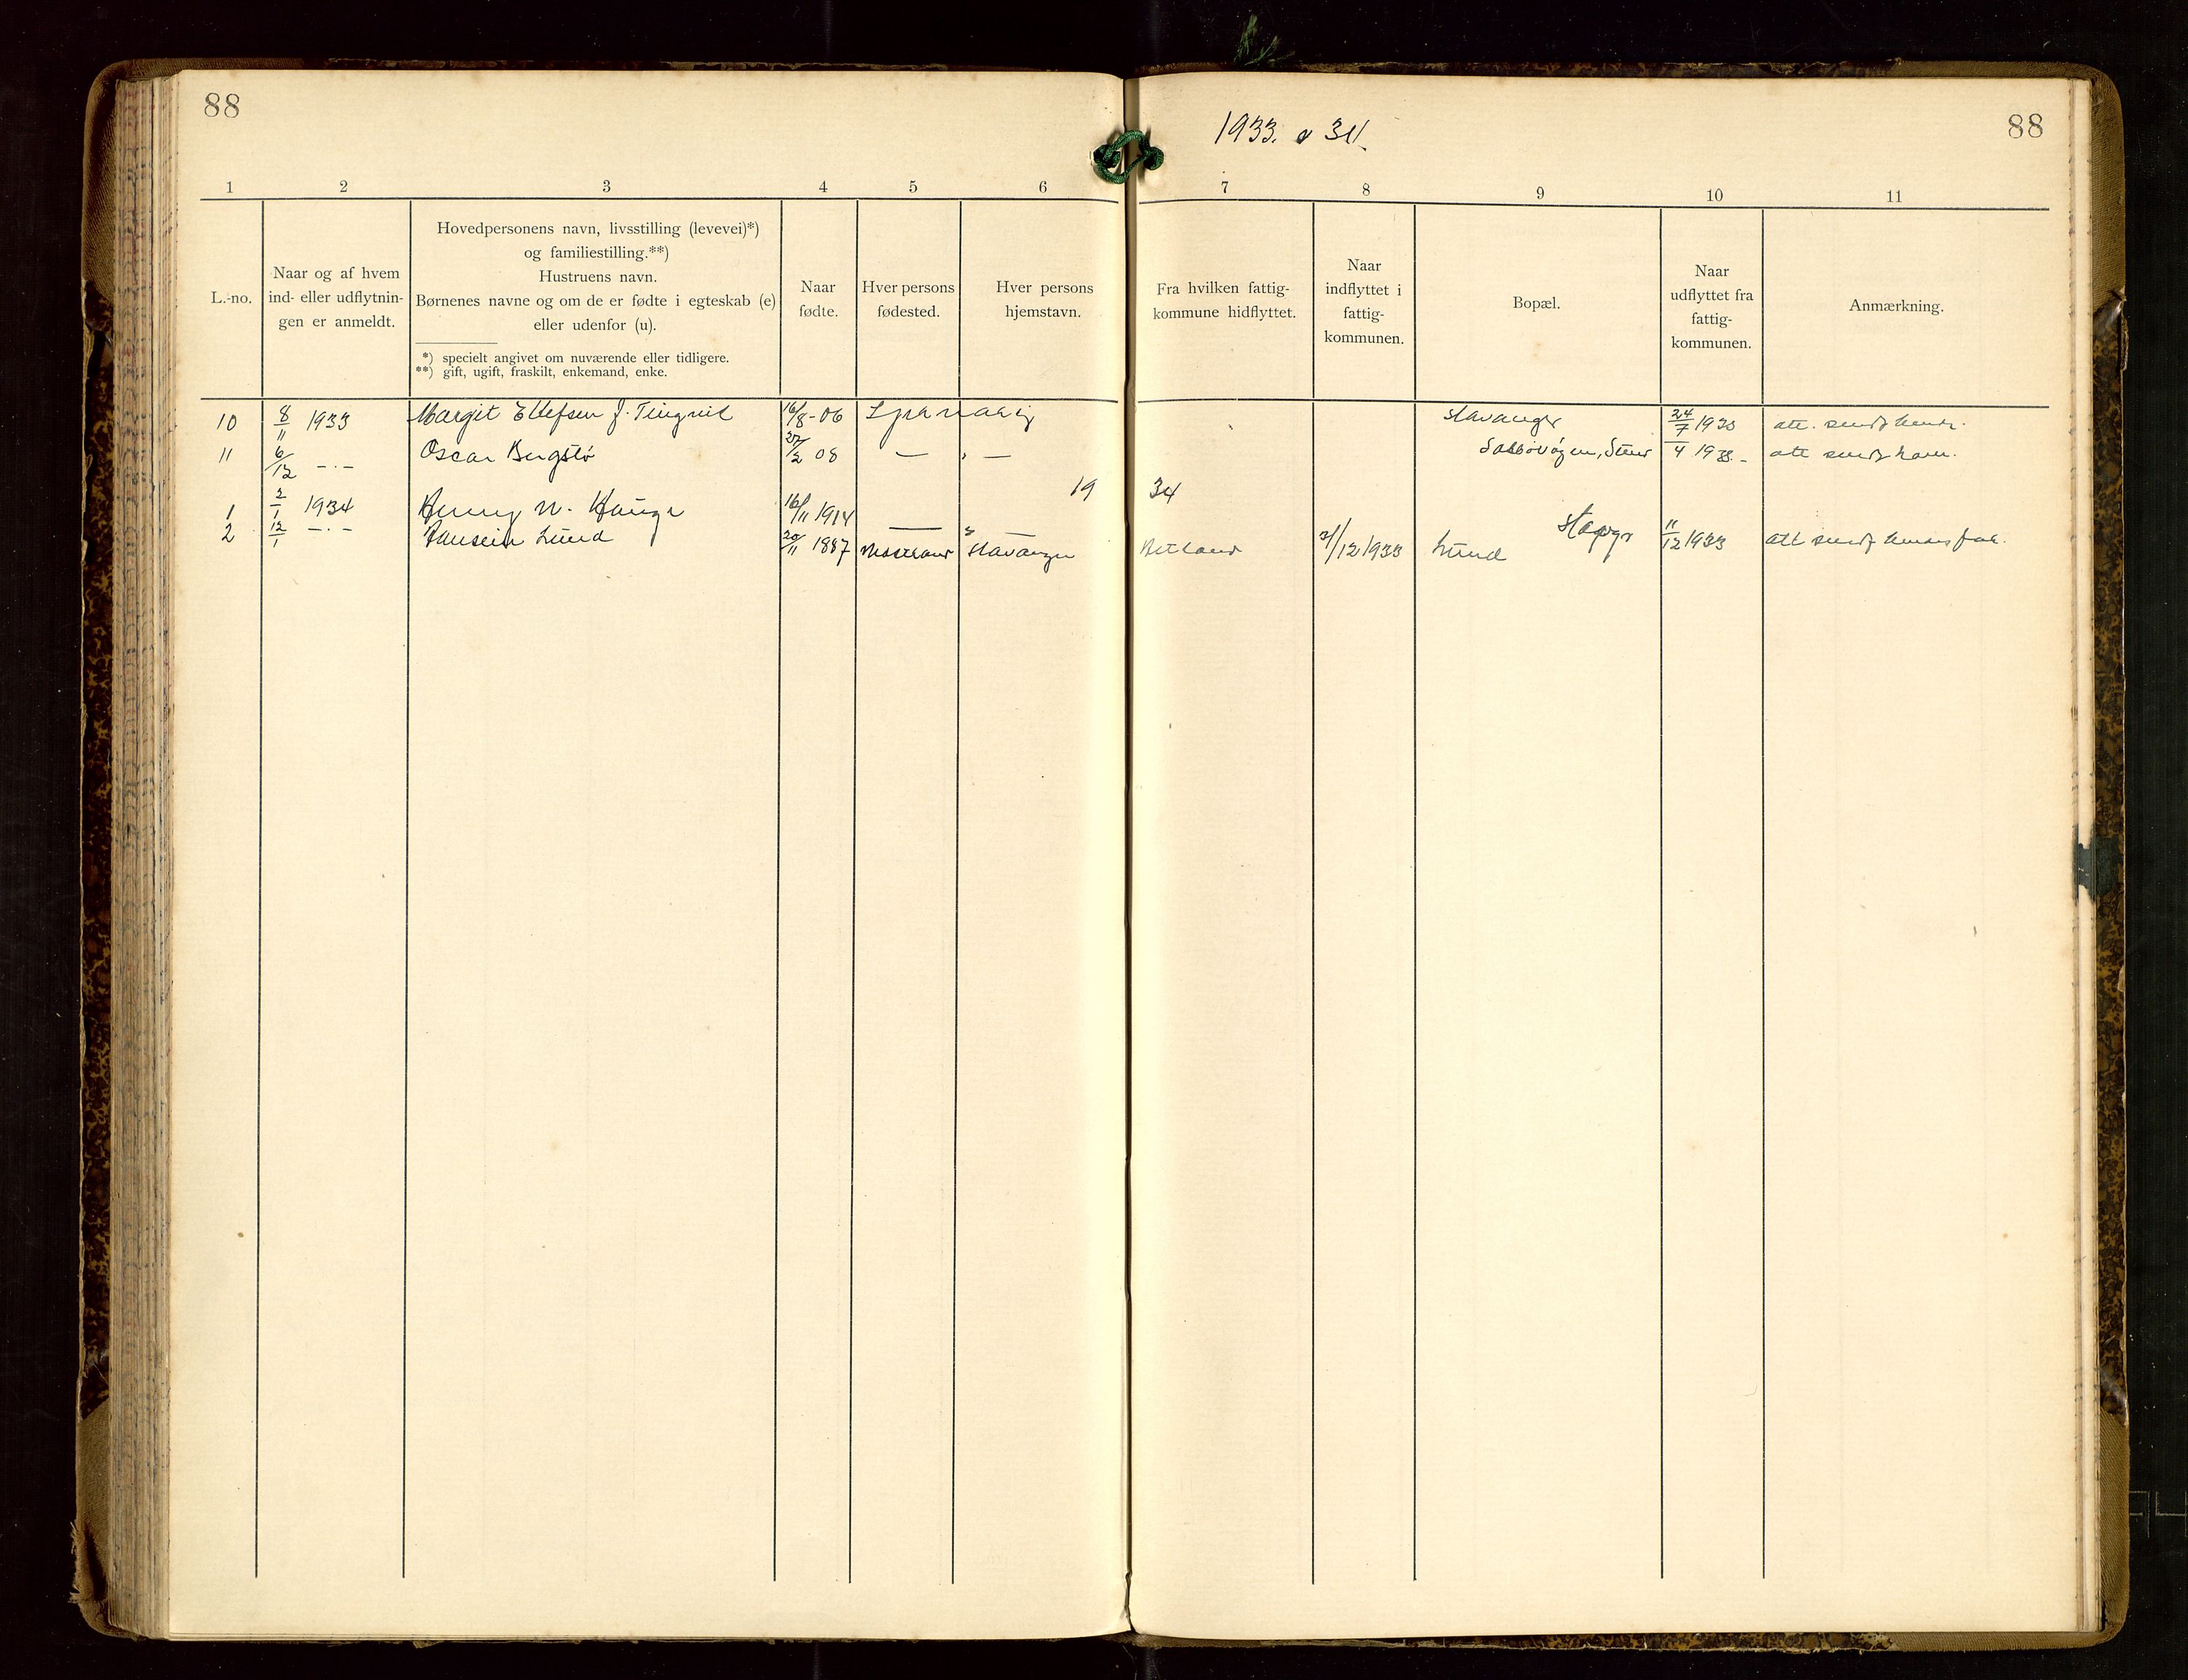 88
1933. & 34.
88
1 2 3 4 5 6 7 8 9 10 11
L.-no.
Naar og af hvem
ind- eller udflytnin-
gen er anmeldt.
Hovedpersonens navn, livsstilling (levevei)*)
og familiestilling.**)
Hustruens navn.
Børnenes navne og om de er fødte i egteskab (e)
eller udenfor (u).
*) specielt angivet om nuværende eller tidligere.
**) gift, ugift, fraskilt, enkemand, enke.
Naar
fødte.
Hver persons
fødested.
Hver persons
hjemstavn.
Fra hvilken fattig-
kommune hidflyttet.
Naar
indflyttet i
fattig-
kommunen.
Bopæl.
Naar
udflyttet fra
fattig-
kommunen.
Anmærkning.
10 8/11 1933 Margit Ellefsen f. Tingvit 16/8-06 Stavanger 24/7 1933 att. sendt
11 6/12 -·- Oscar Bergstø 27/2 08 — — 4 1933.- att sendt ham.
19 34
1 2/1 1934 Henny N. Hauge 16/11 1914 — — Stavgr 11/12 1933 att sendt
2 12/1 -·- Lund 20/11 1887 Stavanger Hetland /12 1933 Lund